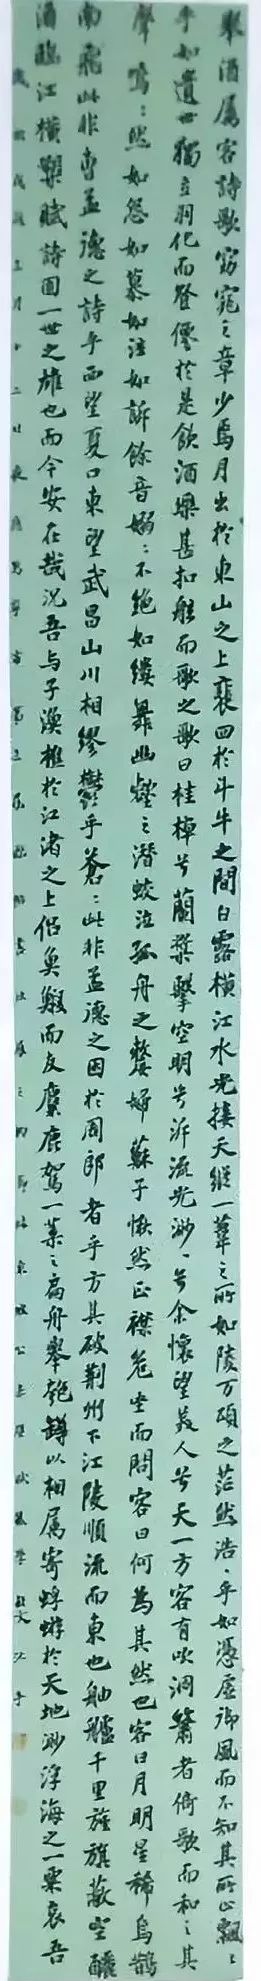 举酒属客诗歌窈窕之章少焉月出於東山之上裵回於斗牛之間白露横江水光接天縦一葦之所如陵万頃之茫然浩〻乎如憑虚御風而不知其所止飄〻
乎如遺世獨立羽化而登僊於是飲酒樂甚扣舷而歌之歌曰桂棹兮蘭槳擊空明兮泝流光渺〻兮余懷望羙人兮天一方客有吹洞簫者倚歌而和之其
聲嗚〻然如怨如慕如泣如訴餘音嫋〻不絶如縷舞幽壑之潜蛟泣孤舟之嫠婦蘇子愀然正襟危坐而問客曰何為其然也客曰月明星稀烏鵲
南飛此非曹孟德之詩乎西望夏口東望武昌山川相繆鬱乎蒼〻此非孟德之困於周郎者乎方其破荆州下江陵順流而東也舳艫千里旌旗蔽空釃
酒臨江横槊賦詩固一世之雄也而今安在哉况吾与子漁樵於江渚之上侣魚鰕而友麋鹿駕一葉之扁舟舉匏罇以相属寄蜉蝣於天地渺浮海之一粟哀吾